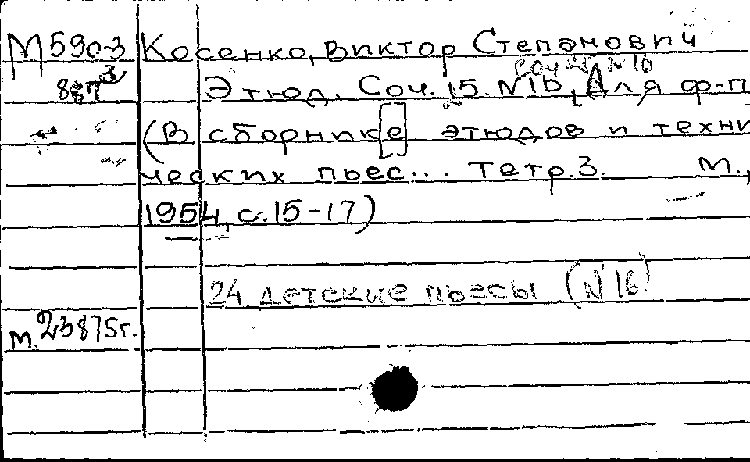 М590-3 Косенко, Виктор Степанович
Соч. 25 N 16
887
Этюд. Соч. 15. N16, Для ф-п
(В сборнике этюдов и техни
ческих пьес... Тетр. 3. М.,
1954, с. 15-17)
24 детские пьесы (N 16)
м. 23875г.